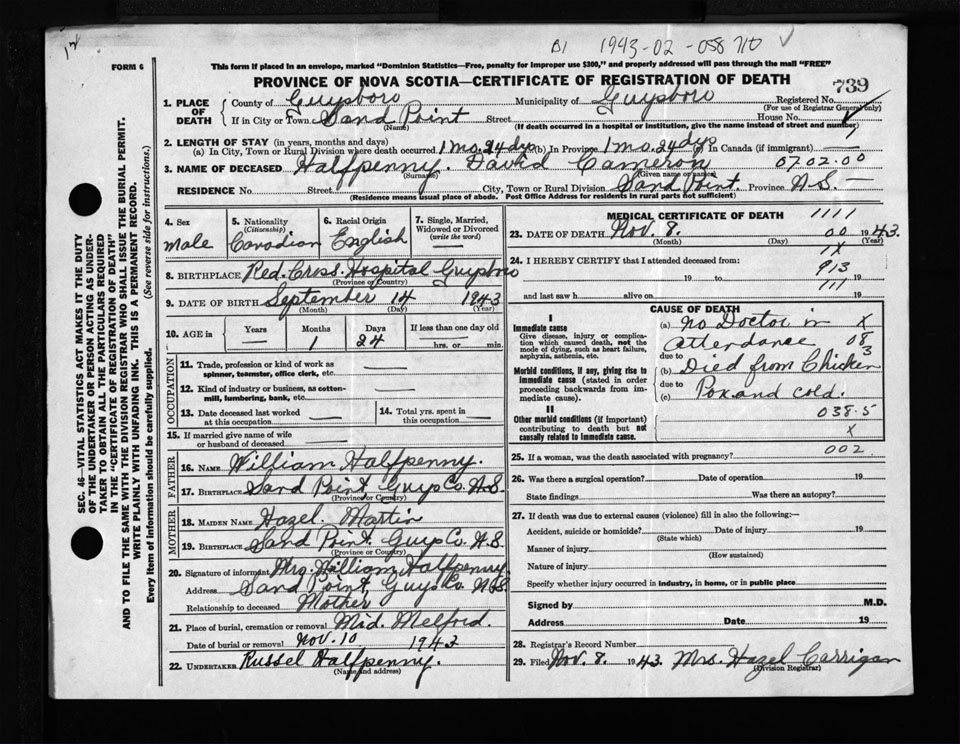 B1 1943-02-058710
FORM 6
This form if placed in an envelope, marked "Dominion Statistics—Free, penalty for improper use $300," and properly addressed will pass through the mail "FREE"
PROVINCE OF NOVA SCOTIA—CERTIFICATE OF REGISTRATION OF DEATH
739
1. PLACE OF DEATH County of Guysboro Municipality of Guysboro Registered No.
(For use of Registrar General only)
If in City or Town Sand Point Street House No.
(Name) (If death occurred in a hospital or institution, give the name instead of street and number)
2. LENGTH OF STAY (in years, months and days)
(a) In City, Town or Rural Division where death occurred 1 mo. 24 dys (b) In Province 1 mo. 24 dys (c) In Canada (if immigrant) —
3. NAME OF DECEASED Halfpenny. David Cameron 0702.00
(Surname) (Given name or names)
RESIDENCE No. Street City, Town or Rural Division Sand Point. Province N.S. —
(Residence means usual place of abode. Post Office Address for residents in rural parts not sufficient)
4. Sex male
5. Nationality (Citizenship) Canadian
6. Racial Origin English
7. Single, Married, Widowed or Divorced (write the word)
8. BIRTHPLACE Red. Cross. Hospital Guysboro
(Province or Country)
9. DATE OF BIRTH September 14 1943
(Month) (Day) (Year)
10. AGE in Years — Months 1 Days 24 If less than one day old hrs. or min.
OCCUPATION
11. Trade, profession or kind of work as spinner, teamster, office clerk, etc. —
12. Kind of industry or business, as cotton-mill, lumbering, bank, etc. —
13. Date deceased last worked at this occupation —
14. Total yrs. spent in this occupation —
15. If married give name of wife or husband of deceased —
FATHER
16. NAME William Halfpenny.
17. BIRTHPLACE Sand Point Guys Co. N.S.
(Province or Country)
MOTHER
18. MAIDEN NAME Hazel. Martin
19. BIRTHPLACE Sand Point. Guys Co. N.S.
(Province or Country)
20. Signature of informant Mrs. William Halfpenny.
Address Sand Point, Guys Co. N.S.
Relationship to deceased Mother
21. Place of burial, cremation or removal Mid. Melford.
Date of burial or removal Nov. 10 1943
22. UNDERTAKER Russel Halfpenny.
(Name and address)
MEDICAL CERTIFICATE OF DEATH 1111
23. DATE OF DEATH Nov. 8. 00 1943.
(Month) (Day) (Year)
1X
24. I HEREBY CERTIFY that I attended deceased from:
913
19 to 19
111
and last saw h alive on 19
CAUSE OF DEATH
I
Immediate cause
Give disease, injury or complication which caused death, not the mode of dying, such as heart failure, asphyxia, asthenia, etc.
Morbid conditions, if any, giving rise to immediate cause (stated in order proceeding backwards from immediate cause).
II
Other morbid conditions (if important) contributing to death but not causally related to immediate cause.
(a) No Doctor in X
attendance 08
due to 3
(b) Died from Chicken
due to
(c) Pox and cold.
038.5
X
25. If a woman, was the death associated with pregnancy? 002
26. Was there a surgical operation? Date of operation 19
State findings Was there an autopsy?
27. If death was due to external causes (violence) fill in also the following:—
Accident, suicide or homicide? Date of injury 19
(State which)
Manner of injury
(How sustained)
Nature of injury
Specify whether injury occurred in industry, in home, or in public place
Signed by M.D.
Address Date 19
28. Registrar's Record Number
29. Filed Nov. 8. 1943. Mrs. Hazel Carrigan
(Division Registrar)
SEC. 46—VITAL STATISTICS ACT MAKES IT THE DUTY
OF THE UNDERTAKER OR PERSON ACTING AS UNDER-
TAKER TO OBTAIN ALL THE PARTICULARS REQUIRED
IN THE "CERTIFICATE OF REGISTRATION OF DEATH"
AND TO FILE THE SAME WITH THE DIVISION REGISTRAR WHO SHALL ISSUE THE BURIAL PERMIT.
WRITE PLAINLY WITH UNFADING INK. THIS IS A PERMANENT RECORD.
Every item of information should be carefully supplied. (See reverse side for instructions.)